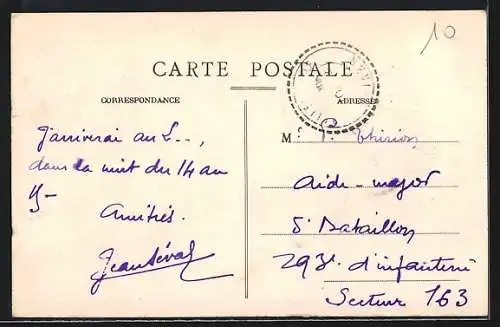 10
CARTE POSTALE
CORRESPONDANCE
ADRESSE
J'arriverai au L--,
dans la nuit du 14 au
15-
Amitiés.
JeanSéval
M. Thirion
Aide-major
5e Bataillon
293e d'infanterie
Secteur 163